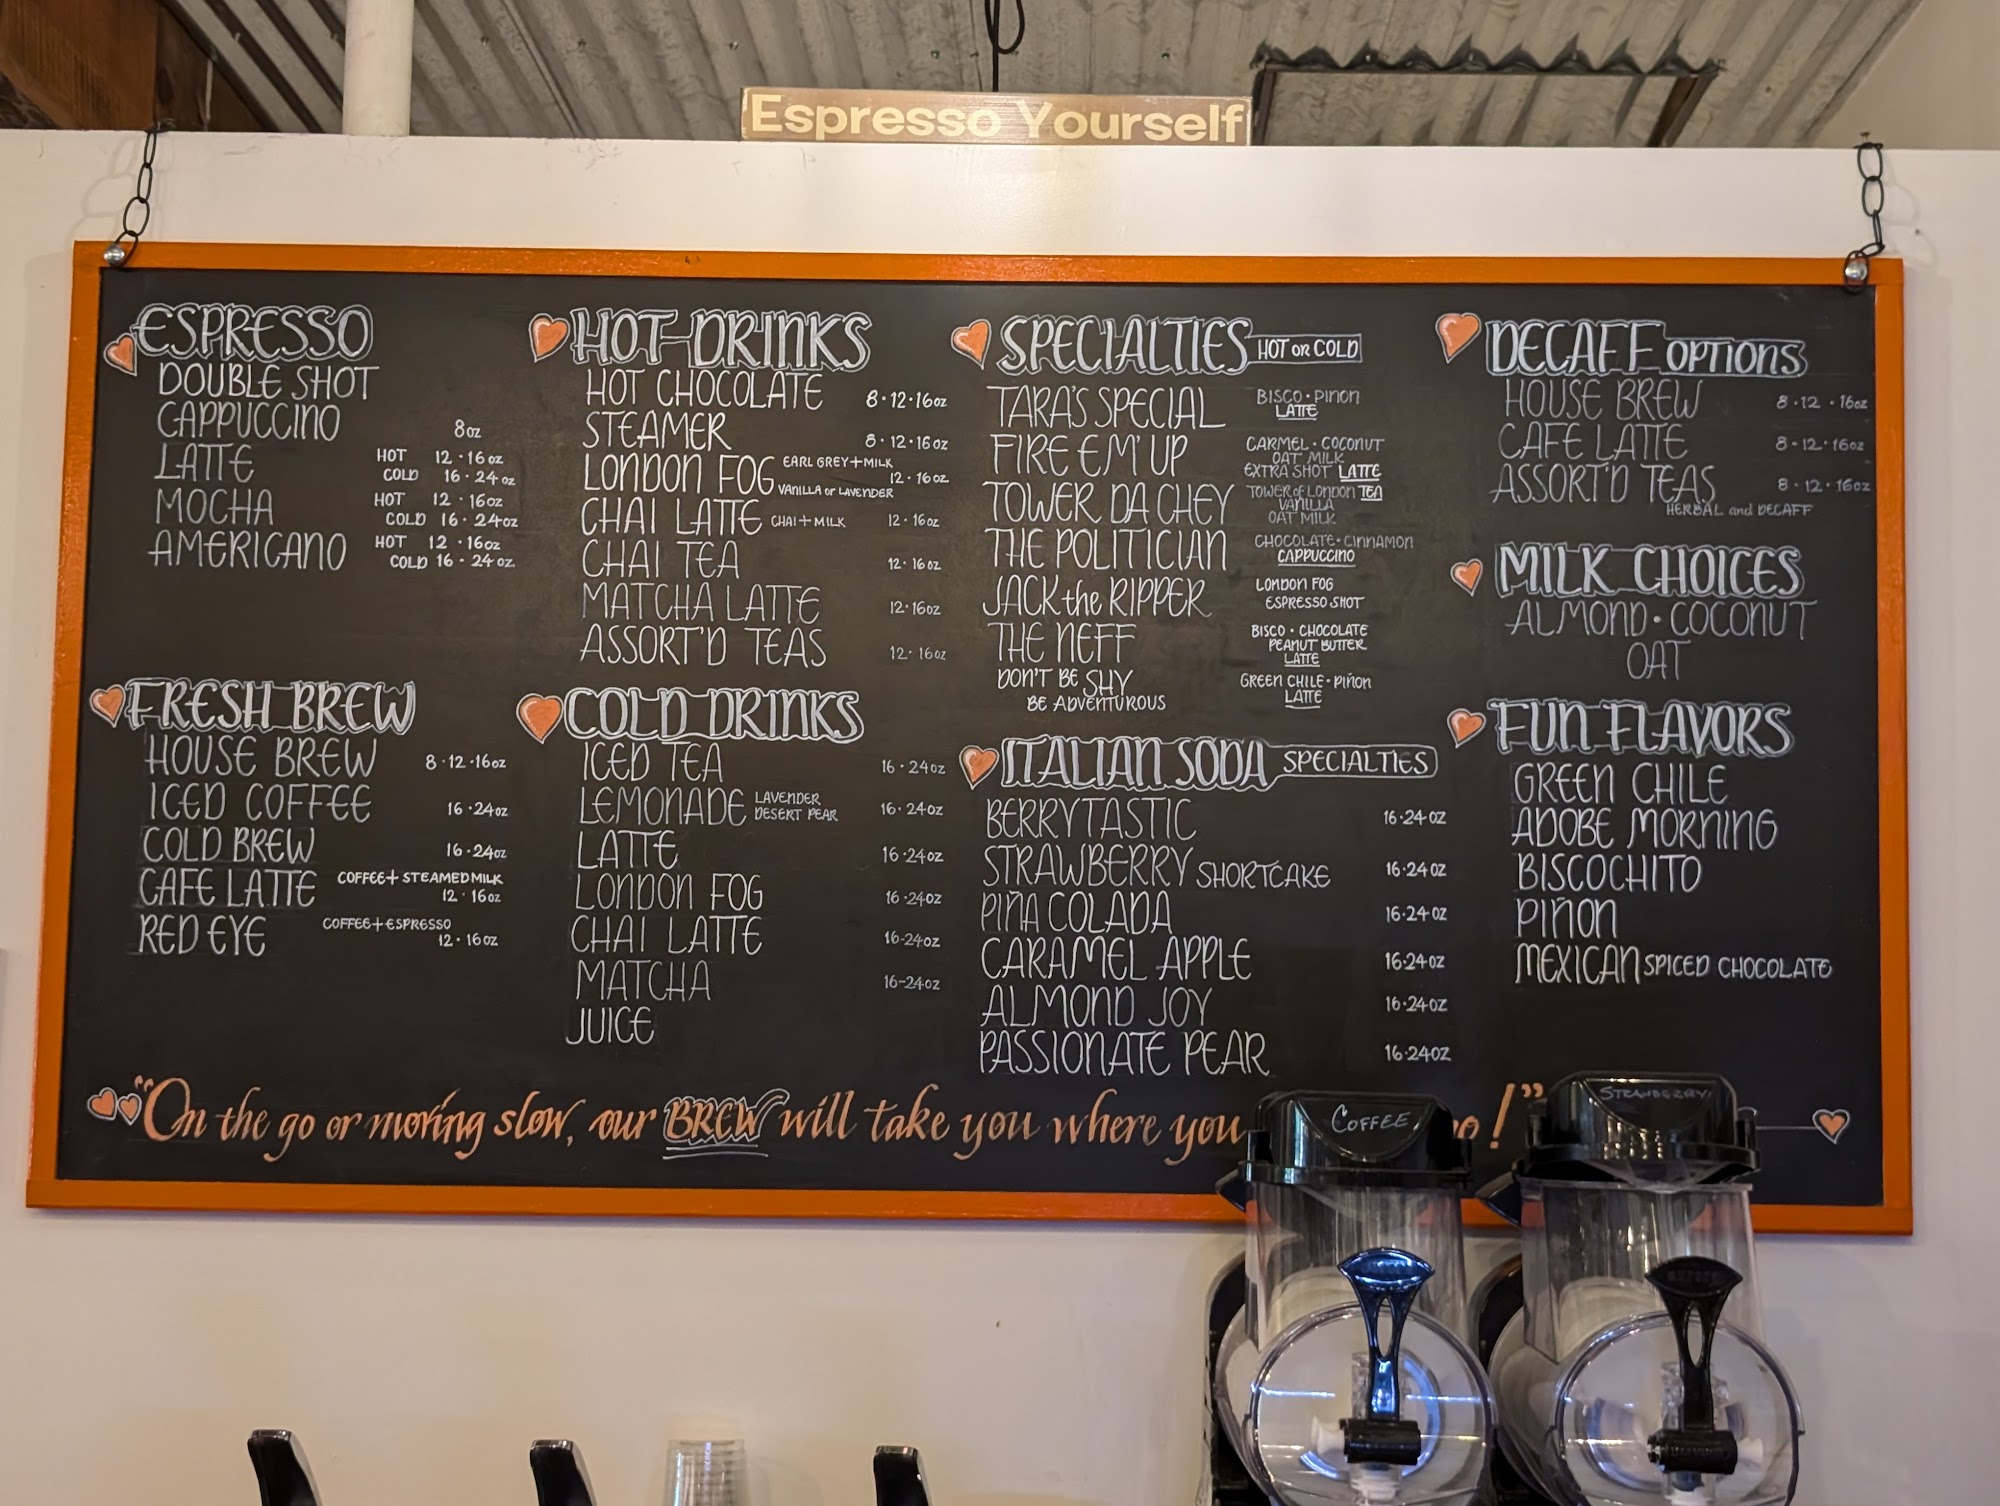 Espresso Yourself
ESPRESSO
DOUBLE SHOT
CAPPUCCINO 8oz
LATTE HOT 12 · 16oz
COLD 16 · 24oz
MOCHA HOT 12 · 16oz
COLD 16 · 24oz
AMERICANO HOT 12 · 16oz
COLD 16 · 24oz.
FRESH BREW
HOUSE BREW 8·12·16oz
ICED COFFEE 16·24oz
COLD BREW 16·24oz
CAFE LATTE COFFEE + STEAMED MILK
12·16oz
RED EYE COFFEE + ESPRESSO
12·16oz
HOT DRINKS
HOT CHOCOLATE 8·12·16oz
STEAMER 8·12·16oz
LONDON FOG EARL GREY + MILK
12·16oz
VANILLA or LAVENDER
CHAI LATTE CHAI + MILK 12·16oz
CHAI TEA 12·16oz
MATCHA LATTE 12·16oz
ASSORT'D TEAS 12·16oz
COLD DRINKS
ICED TEA 16·24oz
LEMONADE LAVENDER
DESERT PEAR 16·24oz
LATTE 16·24oz
LONDON FOG 16·24oz
CHAI LATTE 16-24oz
MATCHA 16-24oz
JUICE
SPECIALTIES HOT or COLD
TARA'S SPECIAL BISCO · PIñON
LATTE
FIRE EM' UP CARMEL · COCONUT
OAT MILK
EXTRA SHOT LATTE
TOWER DA CHEY TOWER of LONDON TEA
VANILLA
OAT MILK
THE POLITICIAN CHOCOLATE · CINNAMON
CAPPUCCINO
JACK the RIPPER LONDON FOG
ESPRESSO SHOT
THE NEFF BISCO · CHOCOLATE
PEANUT BUTTER
LATTE
DON'T BE SHY GREEN CHILE · PIñON
BE ADVENTUROUS LATTE
ITALIAN SODA SPECIALTIES
BERRYTASTIC 16·24oz
STRAWBERRY SHORTCAKE 16·24oz
PIÑA COLADA 16·24oz
CARAMEL APPLE 16·24oz
ALMOND JOY 16·24oz
PASSIONATE PEAR 16·24oz
DECAFF OPTIONS
HOUSE BREW 8·12·16oz
CAFE LATTE 8·12·16oz
ASSORT'D TEAS 8·12·16oz
HERBAL and DECAFF
MILK CHOICES
ALMOND · COCONUT
OAT
FUN FLAVORS
GREEN CHILE
ADOBE MORNING
BISCOCHITO
PIñON
MEXICAN SPICED CHOCOLATE
"On the go or moving slow, our BREW will take you where you !"
COFFEE
STRAWBERRY